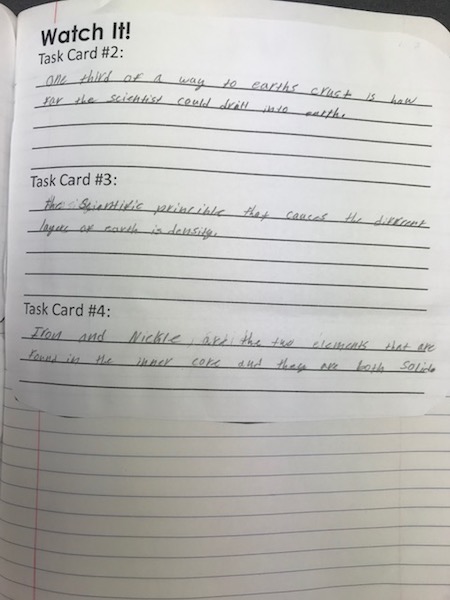 Watch It!
Task Card #2:
one third of a way to earths crust is how
far the scientist could drill into earth.
Task Card #3:
the scientific principle that causes the different
layers of earth is density.
Task Card #4:
Iron and Nickle are the two elements that are
found in the inner core and they are both solids